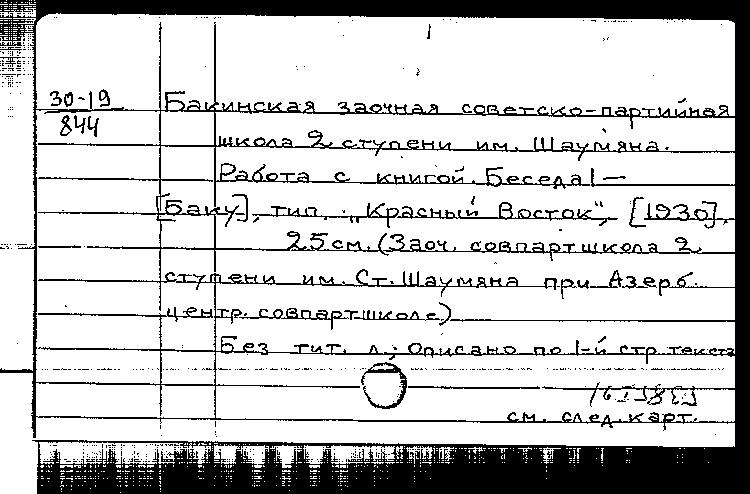 30-19
844
Бакинская заочная советско-партийная
школа 2 ступени им. Шаумяна.
Работа с книгой. Беседа 1 —
[Баку], тип. „Красный Восток", [1930].
25 см. (Заоч. совпартшкола 2
ступени им. Ст. Шаумяна при Азерб.
центр. совпартшколе)
Без тит. л.; Описано по 1-й стр. текста
см. след. карт.